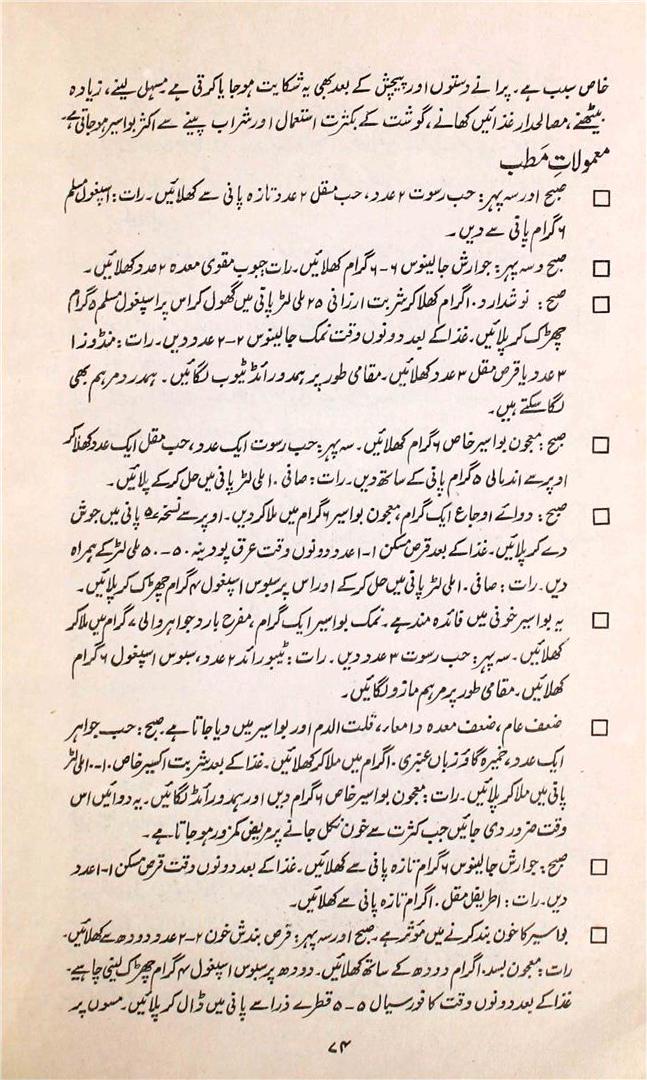 خاص سبب ہے۔ پرانے دستوں اور پیچش کے بعد بھی یہ شکایت ہو جایا کرتی ہے مسہل لینے، زیادہ
بیٹھنے، مصالحدار غذائیں کھانے، گوشت کے بکثرت استعمال اور شراب پینے سے اکثر بواسیر ہو جاتی ہے۔
معمولاتِ مَطب
□ صبح اور سہ پہر: حب رسوت ۲ عدد، حب مقل ۲ عدد تازہ پانی سے کھلائیں۔ رات: اسپغول مسلم
۶ گرام پانی سے دیں۔
□ صبح و سہ پہر: جوارش جالینوس ۶-۶ گرام کھلائیں۔ رات حبوب مقوی معدہ ۲ عدد کھلائیں۔
□ صبح: نوشدارو ۱۰ گرام کھلا کر شربت ارزانی ۲۵ ملی لٹر پانی میں گھول کر اس پر اسپغول مسلم ۵ گرام
چھڑک کر پلائیں۔ غذا کے بعد دونوں وقت نمک جالینوس ۲-۲ عدد دیں۔ رات: منڈوزا
۳ عدد یا قرص مقل ۳ عدد کھلائیں۔ مقامی طور پر ہمدورائڈ ٹیوب لگائیں۔ ہمدرد مرہم بھی
لگا سکتے ہیں۔
□ صبح: معجون بواسیر خاص ۶ گرام کھلائیں۔ سہ پہر: حب رسوت ایک عدد، حب مقل ایک عدد کھلا کر
اوپر سے اندمالی ۵ گرام پانی کے ساتھ دیں۔ رات: صافی ۱۰ ملی لٹر پانی میں حل کر کے پلائیں۔
□ صبح: دوائے اوجاع ایک گرام، معجون بواسیر ۶ گرام میں ملا کر دیں۔ اوپر سے نسخہ ۵ پانی میں جوش
دے کر پلائیں۔ غذا کے بعد قرص مسکن ۱-۱ عدد دونوں وقت عرق پودینہ ۵۰-۵۰ ملی لٹر کے ہمراہ
دیں۔ رات: صافی ۱۰ ملی لٹر پانی میں حل کر کے اور اس پر سبوس اسپغول ۴ گرام چھڑک کر پلائیں۔
□ یہ بواسیر خونی میں فائدہ مند ہے۔ نمک بواسیر ایک گرام، مفرح بارد جواہر والی ۷ گرام میں ملا کر
کھلائیں۔ سہ پہر: حب رسوت ۳ عدد دیں۔ رات: ٹیبورائد ۲ عدد، سبوس اسپغول ۶ گرام
کھلائیں۔ مقامی طور پر مرہم مازو لگائیں۔
□ ضعف عام، ضعف معدہ و امعار، قلت الدم اور بواسیر میں دیا جاتا ہے۔ صبح: حب جواہر
ایک عدد، خمیرہ گاؤزباں عنبری ۱۰ گرام میں ملا کر کھلائیں۔ غذا کے بعد شربت اکسیر خاص ۱۰-۱۰ ملی لٹر
پانی میں ملا کر پلائیں۔ رات: معجون بواسیر خاص ۶ گرام دیں اور ہمدورائڈ لگائیں۔ یہ دوائیں اس
وقت ضرور دی جائیں جب کثرت سے خون نکل جانے پر مریض کمزور ہو جاتا ہے۔
□ صبح: جوارش جالینوس ۶ گرام تازہ پانی سے کھلائیں۔ غذا کے بعد دونوں وقت قرص مسکن ۱-۱ عدد
دیں۔ رات: اطریفل مقل ۱۰ گرام تازہ پانی سے کھلائیں۔
□ بواسیر کا خون بند کرنے میں مؤثر ہے۔ صبح اور سہ پہر: قرص بندش خون ۲-۲ عدد دودھ سے کھلائیں۔
رات: معجون بسد ۱۰ گرام دودھ کے ساتھ کھلائیں۔ دودھ پر سبوس اسپغول ۴ گرام چھڑک لینی چاہیے۔
غذا کے بعد دونوں وقت کافور سیال ۵-۵ قطرے ذرا سے پانی میں ڈال کر پلائیں۔ مسوں پر
۷۴